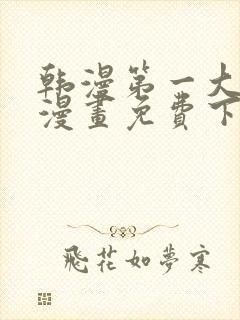 韩漫第一大
漫畫免費下
飛花如夢寒